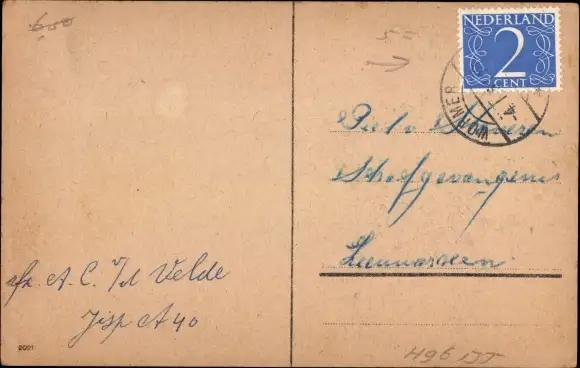 650
5=
NEDERLAND
2
CENT
WORMER
4
Piet v
Strafgevangenis
Leeuwarden
afz. A. C. v/d Velde
Jisp A 40
2021
496